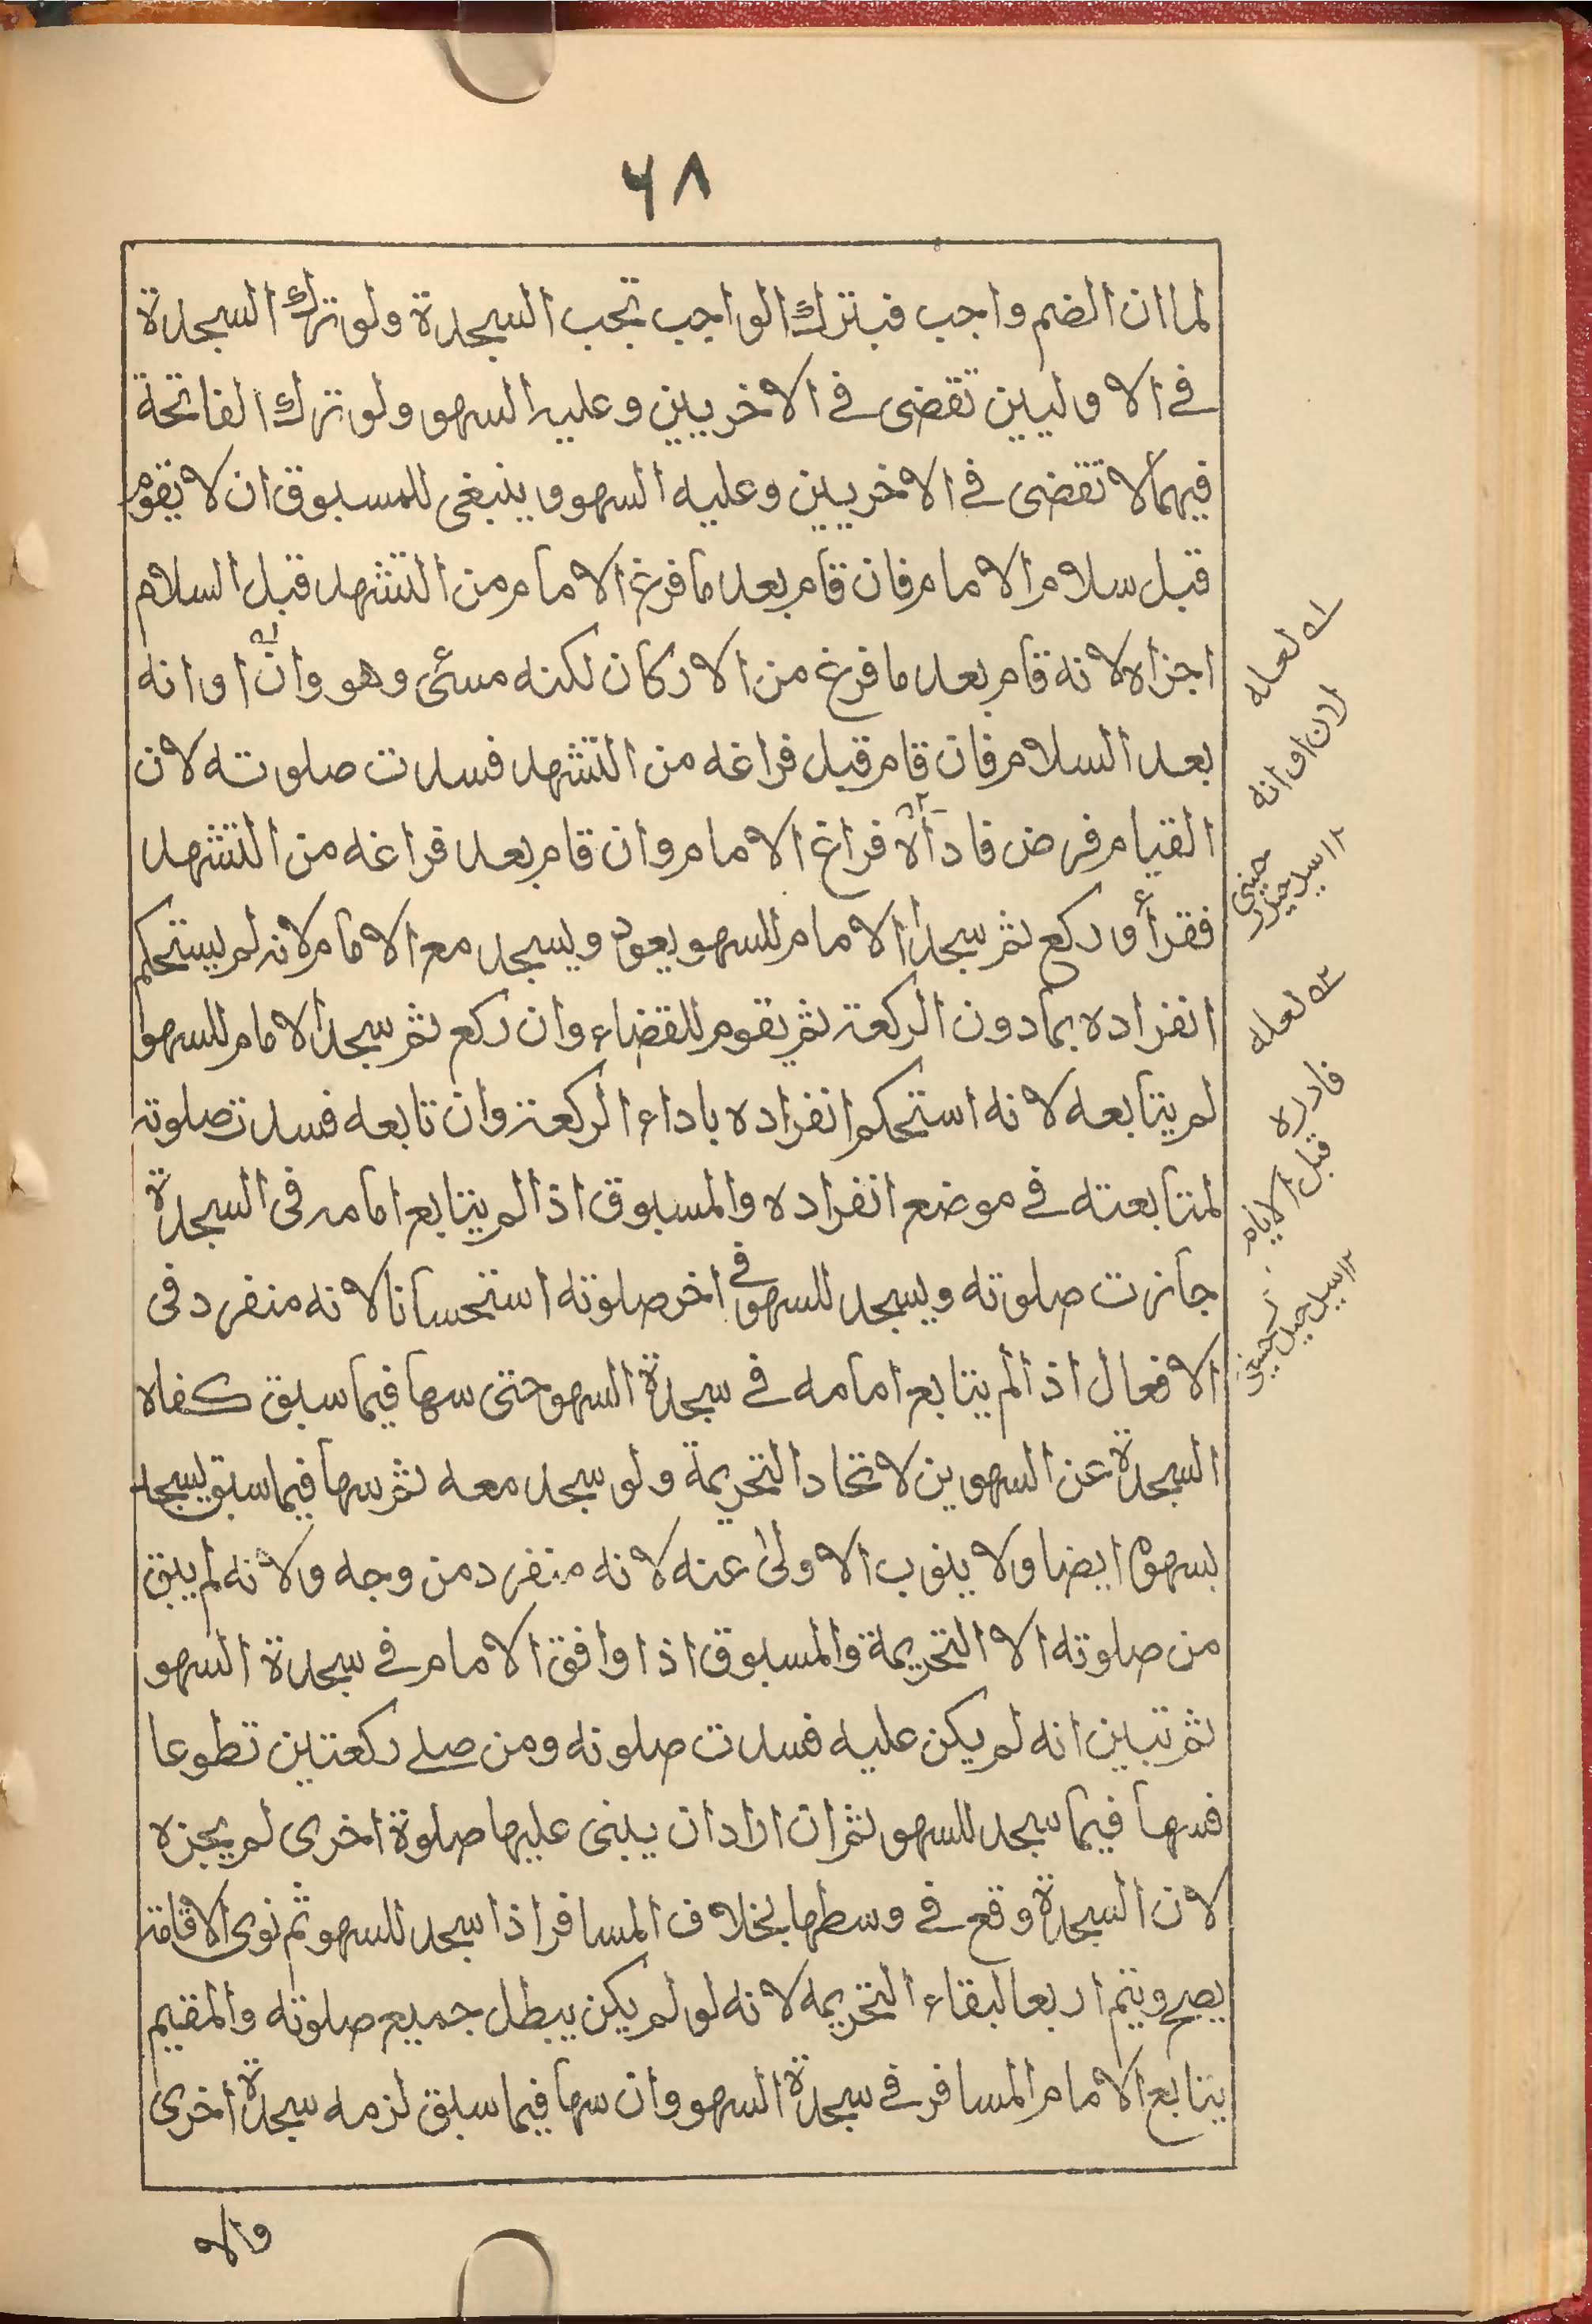 ٦٨
لما ان الضم واجب فبترك الواجب تجب السجدة ولو ترك السجدة
في الاوليين تقضى في الاخريين وعليه السهو ولو ترك الفاتحة
فيهما لا تقضى في الاخريين وعليه السهو وينبغى للمسبوق ان لا يقوم
قبل سلام الامام فان قام بعد ما فرغ الامام من التشهد قبل السلام
اجزاه لانه قام بعد ما فرغ من الاركان لكنه مسئ وهو وانّ اوانه
بعد السلام فان قام قبل فراغه من التشهد فسدت صلوته لان
القيام فرض فادآه فراغ الامام وان قام بعد فراغه من التشهد
فقرأ وركع ثم سجد الامام للسهو يعود ويسجد مع الامام لانه لم يستحكم
انفراده بمادون الركعة ثم يقوم للقضاء وان ركع ثم سجد الامام للسهو
لم يتابعه لانه استحكم انفراده باداء الركعة وان تابعه فسدت صلوته
لمتابعته في موضع انفراده والمسبوق اذا لم يتابع امامه في السجدة
جازت صلوته ويسجد للسهو في اخر صلوته استحسانا لانه منفرد في
الافعال اذا لم يتابع امامه في سجدة السهو حتى سها فيما سبق كفاه
السجدة عن السهوين لاتحاد التحريمة ولو سجد معه ثم سها فيما سبق يسجد
بسهوه ايضا ولا ينوب الاولىٰ عنه لانه منفرد من وجه ولانه لم يبق
من صلوته الا التحريمة والمسبوق اذا وافق الامام في سجدة السهو
ثم تبين انه لم يكن عليه فسدت صلوته ومن صلے ركعتين تطوعا
فسها فيما سجد للسهو ثم ان اراد ان يبنى عليها صلوة اخرى لم يجزه
لان السجدة وقع في وسطها بخلاف المسافر اذا سجد للسهو ثم نوى الاقامة
يصح ويتم اربعا لبقاء التحريمه لانه لو لم يكن يبطل جميع صلوته والمقيم
يتابع الامام المسافر في سجدة السهو وان سها فيما سبق لزمه سجدة اخرى
والا
له لعله
اوانه
١٢ سيد حيدر
حسينى
٢ه لعله
فادره
قبل
١٢ سيد
حسينى